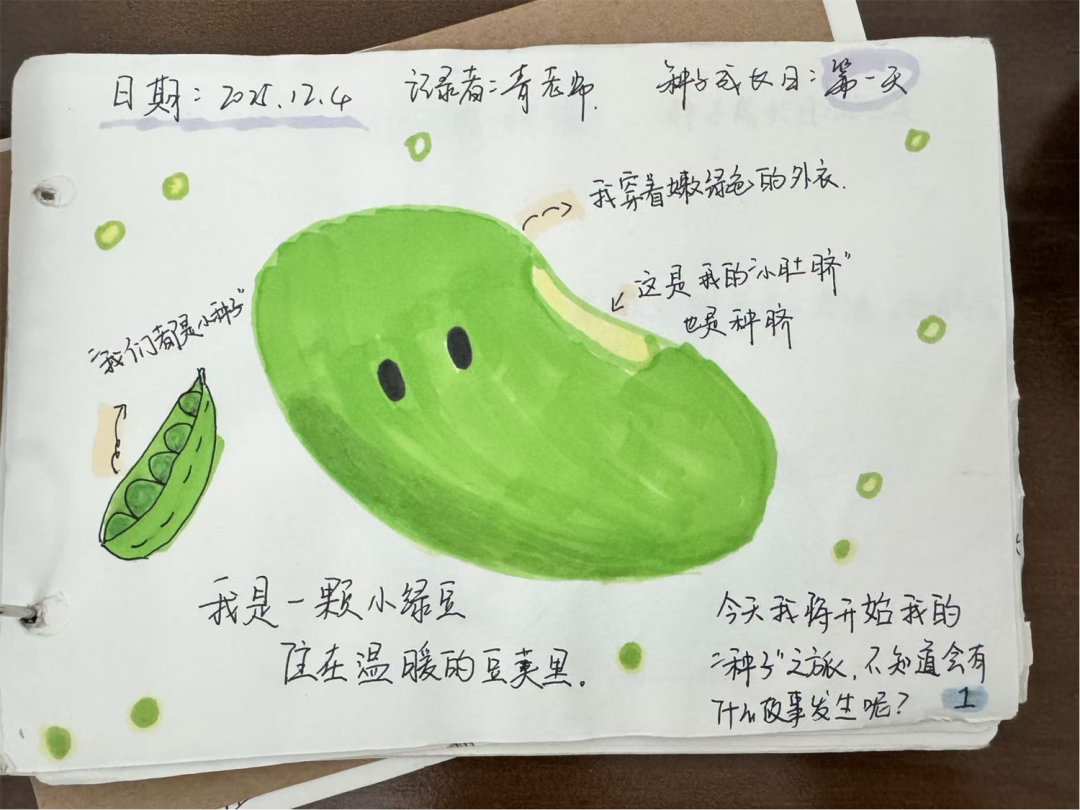 日期：2025.12.4
记录者：青老师.
种子成长日：第一天
我穿着嫩绿色的外衣.
这是我的"小肚脐"
也是种脐
"我们都是小种子"
我是一颗小绿豆
住在温暖的豆荚里.
今天我将开始我的
"种子"之旅，不知道会有
什么故事发生呢？
1